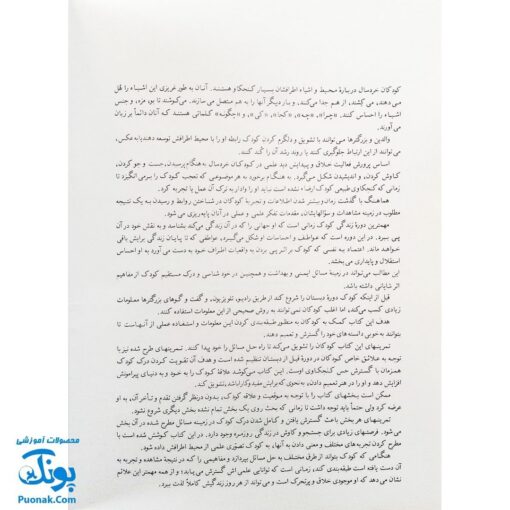 کودکان خردسال دربارهٔ محیط و اشیاء اطرافشان بسیار کنجکاو هستند. آنان به طور غریزی این اشیاء را هُل
می‌دهند، می‌کِشند، از هم جدا می‌کنند، و بار دیگر آنها را به هم متصل می‌سازند. می‌کوشند تا بو، مزه، و جنس
اشیاء را احساس کنند. «چرا»، «چه»، «کجا»، «کی»، و «چگونه» کلماتی هستند که آنان دائماً بر زبان
می‌آورند.
والدین و بزرگترها می‌توانند با تشویق و دلگرم کردن کودک رابطه او را با محیط اطرافش توسعه دهند یا به عکس،
می‌توانند از این ارتباط جلوگیری کنند یا روند رشد آن را کُند کنند.
اساس پرورش فعالیت خلاق و پیدایش دید علمی در کودکان خردسال به هنگام پرسیدن، جست و جو کردن،
کاوش کردن، و اندیشیدن شکل می‌گیرد. به هنگام برخورد به هر موضوعی که تعجب کودک را برمی‌انگیزد تا
زمانی که کنجکاوی طبیعی کودک ارضاء نشده است نباید او را وادار به ترک آن عمل یا تجربه کرد.
هماهنگ با گذشت زمان و بیشتر شدن اطلاعات و تجربهٔ کودکان در شناختن روابط و رسیدن به یک نتیجه
مطلوب در زمینه مشاهدات و سؤالهایشان، مقدمات تفکر علمی و عملی در آنان پایه‌ریزی می‌شود.
مهمترین دورهٔ زندگی کودک زمانی است که او جهانی را که در آن زندگی می‌کند بشناسد و به نقش خود در آن
پی ببرد. در این دوره است که عواطف و احساسات او شکل می‌گیرد، عواطفی که تا پایان زندگی برایش باقی
خواهند ماند. اعتماد به نفسی که کودک بر اثر پی بردن به واقعیات اطراف خود به دست می‌آورد به او احساس
استقلال و پایداری می‌بخشد.
این مطالب می‌تواند در زمینهٔ مسائل ایمنی و بهداشت و همچنین در خودشناسی و درک مستقیم کودک از مفاهیم
اثر شایانی داشته باشد.
قبل از اینکه کودک دورهٔ دبستان را شروع کند از طریق رادیو، تلویزیون، و گفت و گوهای بزرگترها معلومات
زیادی کسب می‌کند، اما اغلب کودکان نمی‌توانند به روش صحیحی از این معلومات استفاده کنند.
هدف این کتاب کمک به کودکان به منظور طبقه‌بندی کردن این معلومات و استفاده عملی از آنهاست تا
بتوانند به خوبی دانسته‌های خود را گسترش و تعمیم دهند.
تمرینهای این کتاب کودکان را تشویق می‌کند تا راه حل مسائل خود را پیدا کنند. تمرینهای طرح شده نیز با
توجه به علائق خاص کودکان در دورهٔ قبل از دبستان تنظیم شده است و هدف آن تقویت کردن درک کودک
همزمان با گسترش حس کنجکاوی اوست. این کتاب می‌کوشد علاقهٔ کودک را به خود و به دنیای پیرامونش
افزایش دهد و او را در هنر تعمیم دادن، به نحوی که برایش مفید و کارا باشد، تشویق کند.
ممکن است بخشهای کتاب را با توجه به موقعیت و علاقهٔ کودک، بدون درنظر گرفتن تقدم و تأخر آن، به او
عرضه کرد ولی حتماً باید توجه داشت تا زمانی که بحث روی یک بخش تمام نشده بخش دیگری شروع نشود.
تمرینهای هر بخش باعث گسترش یافتن و کامل شدن درک کودک در زمینه مسائل مطرح شده در آن بخش
می‌شود. فرصتهای زیادی برای جستجو و کاوش در زندگی روزمره وجود دارد. در این کتاب کوشش شده است با
مطرح کردن تجربه‌های مختلف و معنی دادن به آنها، به کودک تصوّری علمی از محیط اطرافش داده شود.
هنگامی که کودک بتواند از طرق مختلف به حل مسائل بپردازد و مفاهیمی را که در نتیجهٔ مشاهده و تجربه به
آن دست یافته است طبقه‌بندی کند، زمانی است که توانایی علمی اش گسترش می‌یابد؛ و از همه مهمتر این علائم
نشان می‌دهد که او موجودی خلاق و پرتحرک است و می‌تواند از هر روز زندگیش کاملاً لذت ببرد.
محصولات آموزشی
پونک
Puonak.Com